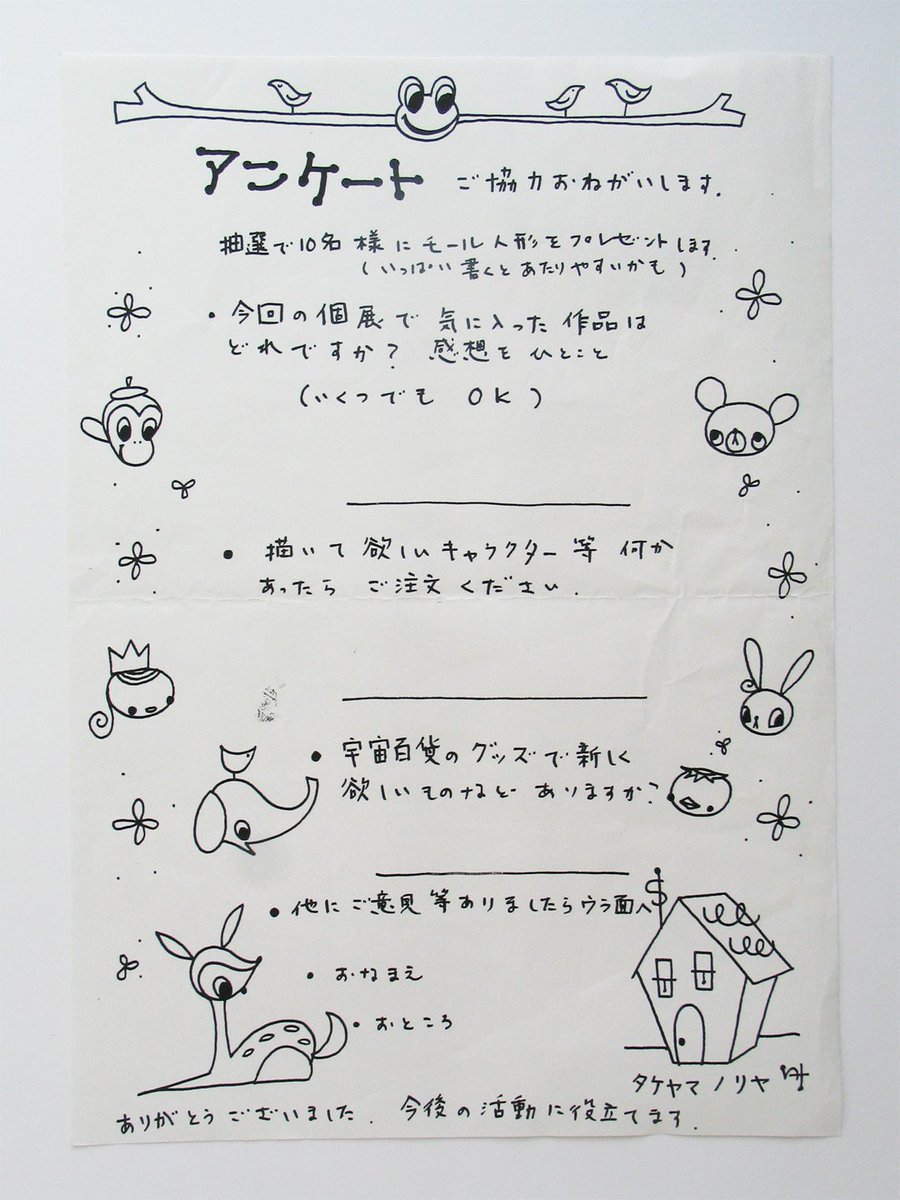 アンケート ご協力おねがいします.
抽選で10名様にモール人形をプレゼントします
(いっぱい書くとあたりやすいかも)
・今回の個展で気に入った作品は
どれですか? 感想をひとこと
(いくつでも OK)
・描いて欲しいキャラクター等 何か
あったら ご注文ください.
・宇宙百貨のグッズで新しく
欲しいものなど ありますか?
・他にご意見等ありましたらウラ面へ
・おなまえ
・おところ
タケヤマ ノリヤ
ありがとうございました. 今後の活動に役立てます.